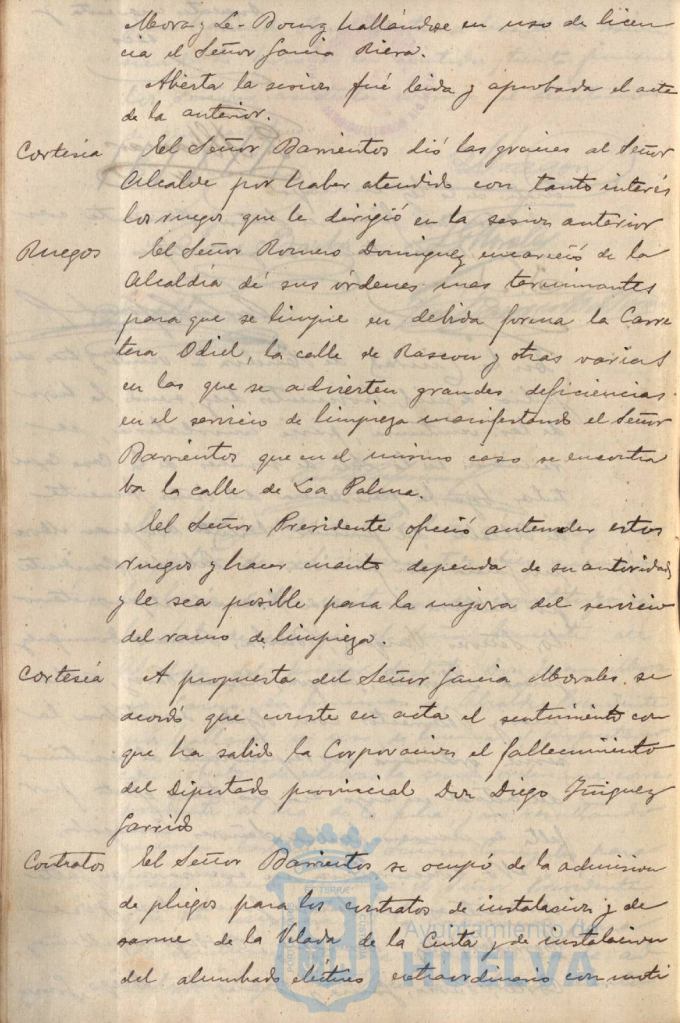 Mora y Le-Bourg hallándose en uso de licen
cia el Señor Garcia Riera.
Abierta la sesion fué leida y aprobada el acta
de la anterior.
Cortesia El Señor Barrientos dió las gracias al Señor
Alcalde por haber atendido con tanto interés
los ruegos que le dirigió en la sesion anterior
Ruegos El Señor Romero Dominguez encareció de la
Alcaldía dé sus órdenes mas terminantes
para que se limpie en debida forma la Carre
tera Odiel, la calle de Rascon y otras varias
en las que se advierten grandes deficiencias
en el servicio de limpieza manifestando el Señor
Barrientos que en el mismo caso se encontra
ba la calle de La Palma.
El Señor Presidente ofreció atender estos
ruegos y hacer cuanto dependa de su autoridad
y le sea posible para la mejora del servicio
del ramo de limpieza.
Cortesia A propuesta del Señor Garcia Morales se
acordó que conste en acta el sentimiento con
que ha sabido la Corporacion el fallecimiento
del Diputado provincial Don Diego Iñiguez
Garrido
Contratos El Señor Barrientos se ocupó de la admision
de pliegos para los contratos de instalacion y de
sarme de la Velada de la Cinta y de instalacion
del alumbrado eléctrico extraordinario con moti
Ayuntamiento de
HUELVA